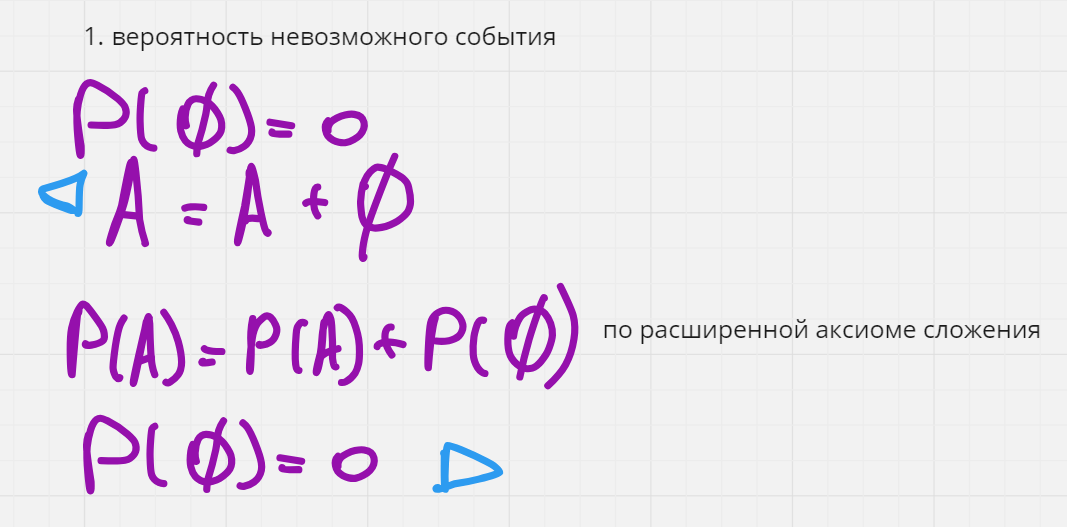 1. вероятность невозможного события
P(∅) = 0
A = A + ∅
P(A) = P(A) + P(∅) по расширенной аксиоме сложения
P(∅) = 0